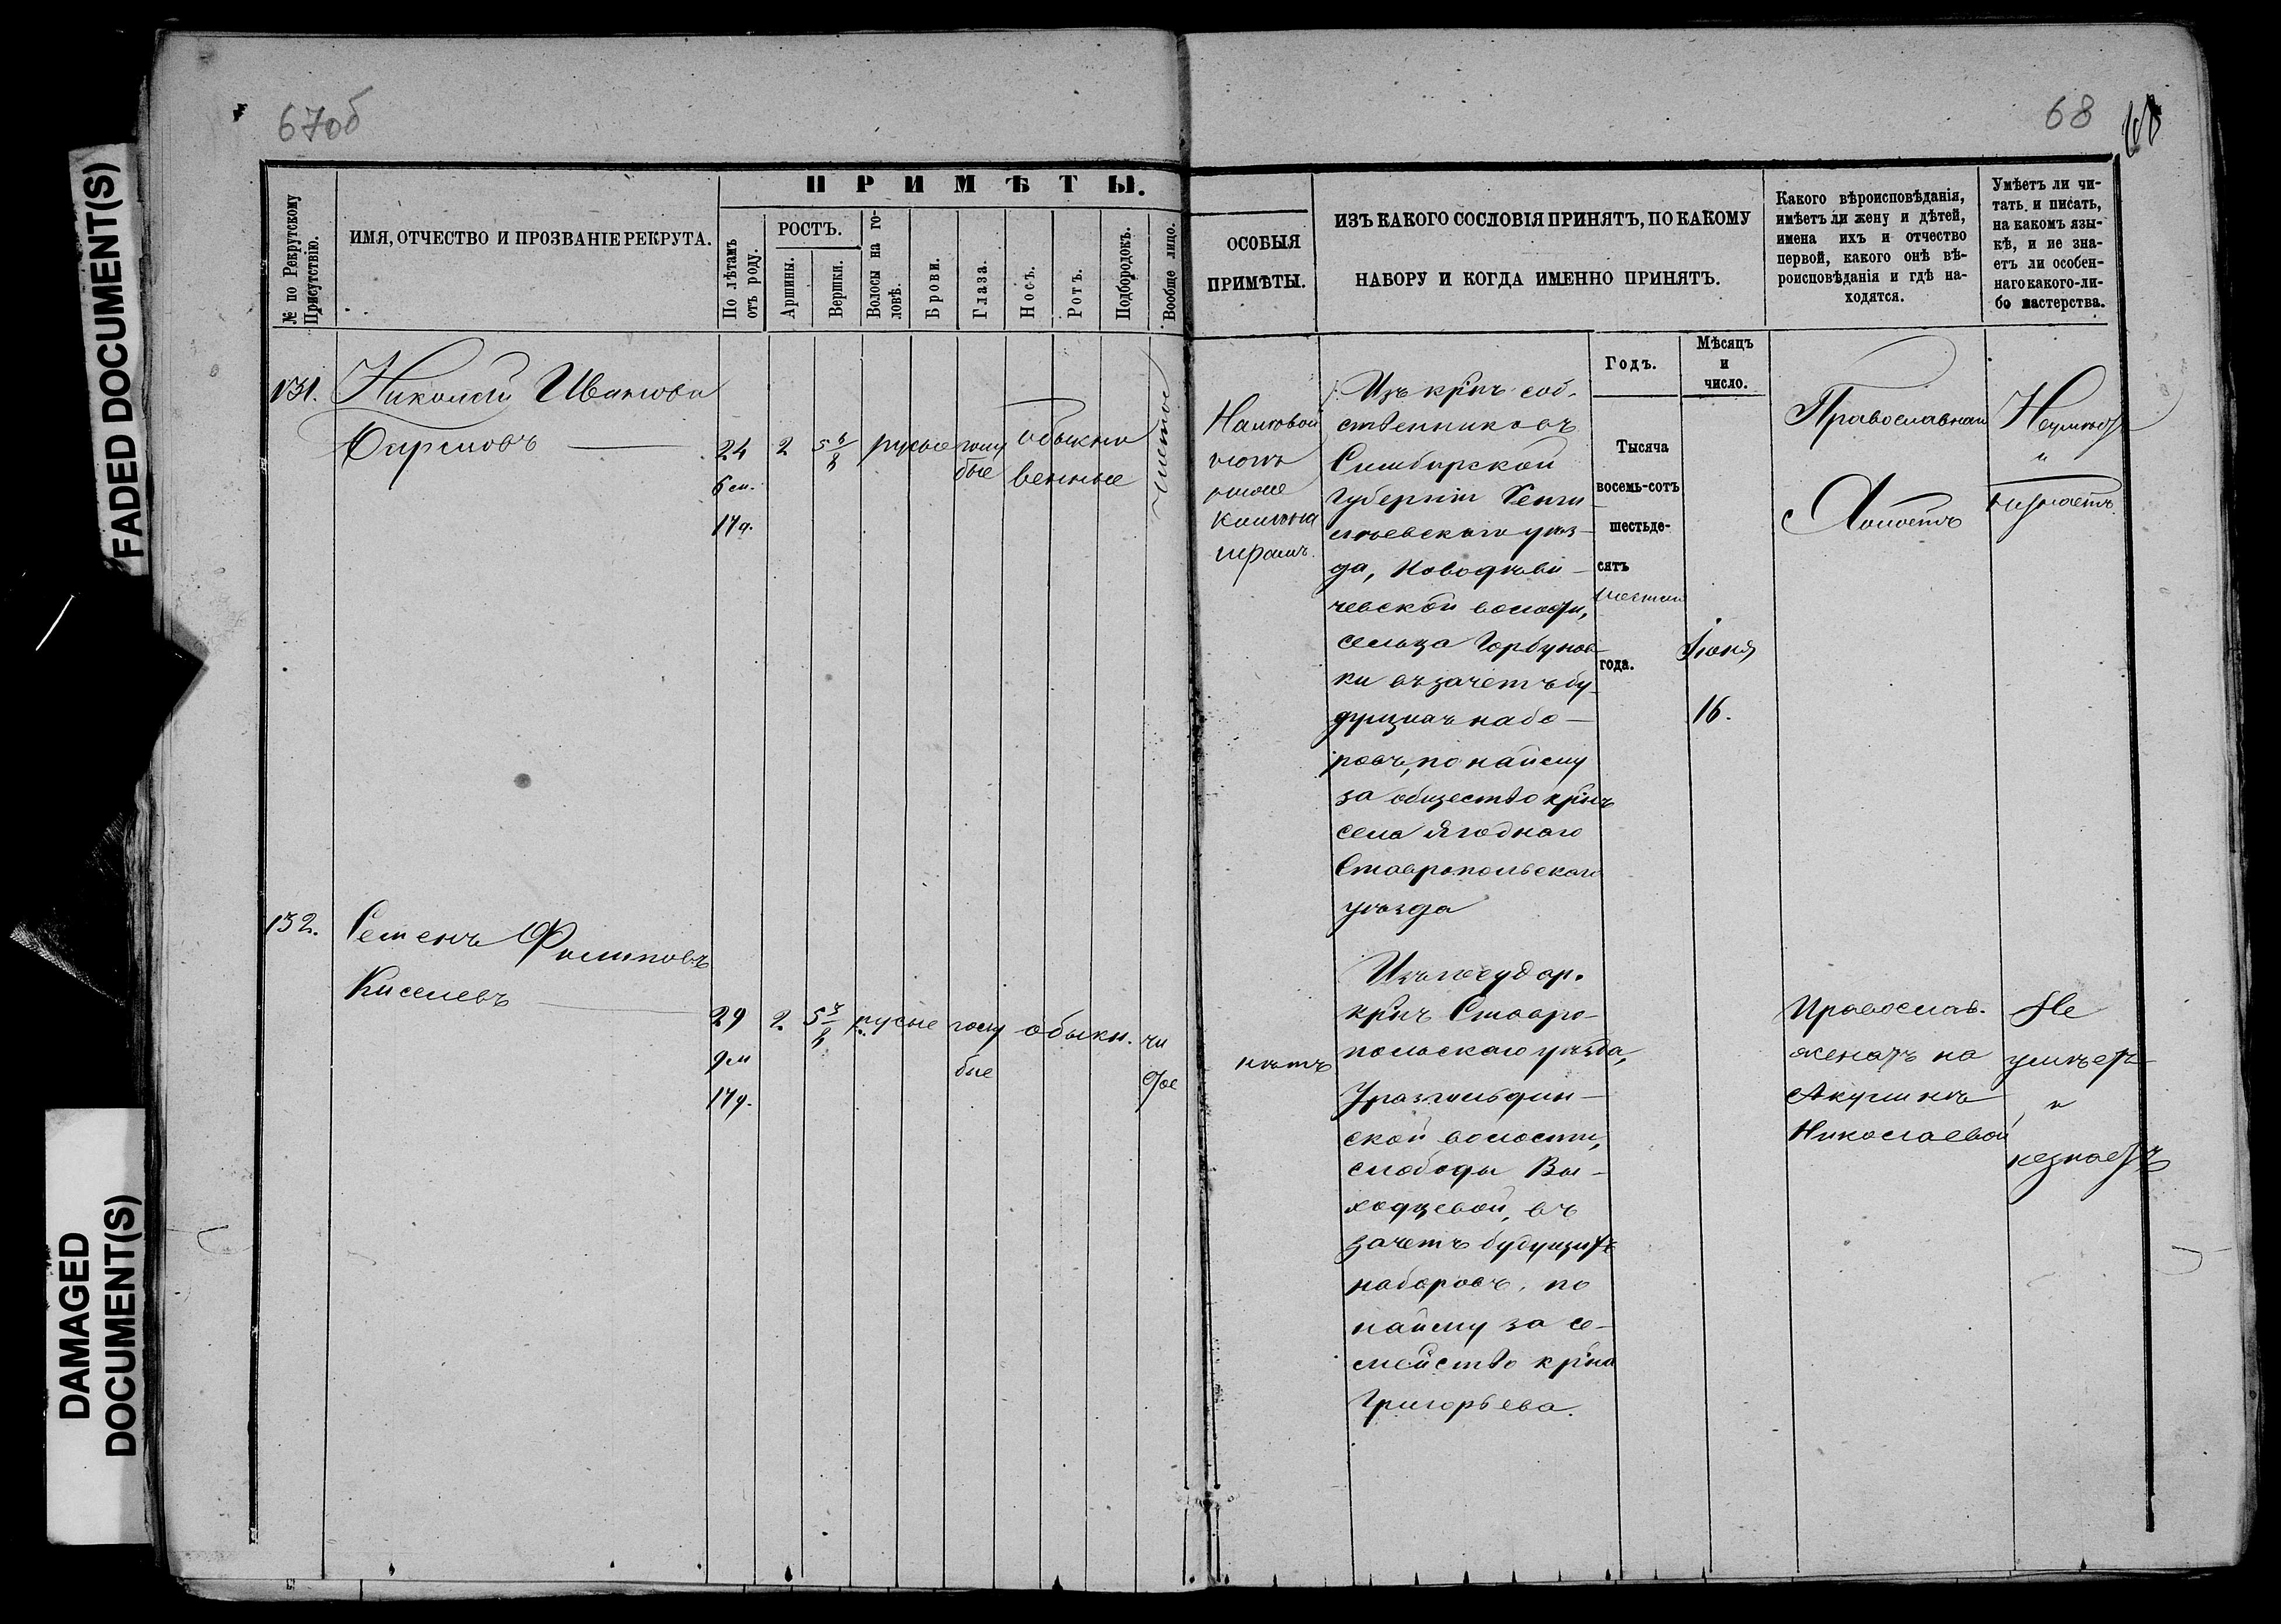 FADED DOCUMENT(S)
DAMAGED
DOCUMENT(S)
67об
68
68
№ по Рекрутскому
Присутствію.
ИМЯ, ОТЧЕСТВО И ПРОЗВАНІЕ РЕКРУТА.
ПРИМѢТЫ.
По лѣтамъ
отъ роду.
РОСТЪ.
Аршины.
Вершки.
Волосы на го-
ловѣ.
Брови.
Глаза.
Носъ.
Ротъ.
Подбородокъ.
Вообще лицо.
ОСОБЫЯ
ПРИМѢТЫ.
ИЗЪ КАКОГО СОСЛОВІЯ ПРИНЯТЪ, ПО КАКОМУ
НАБОРУ И КОГДА ИМЕННО ПРИНЯТЪ.
Какого вѣроисповѣданія,
имѣетъ ли жену и дѣтей,
имена ихъ и отчество
первой, какого онѣ вѣ-
роисповѣданія и гдѣ на-
ходятся.
Умѣетъ ли чи-
тать и писать,
на какомъ язы-
кѣ, и не зна-
етъ ли особен-
наго какого-ли-
бо мастерства.
Годъ.
Мѣсяцъ
и
число.
131.
Николай Ивановъ
24
6 м.
17 д.
2
5 6/8
русые
голу
бые
обыкно
венные
чистое
На лѣвой
ногѣ
ниже
колѣна
шрамъ.
Изъ крнъ соб-
ственниковъ
Симбирской
Губерніи Сенги
леевскаго уѣз-
да, Новодѣви-
чевской волости,
сельца Горбунов-
ки въ зачетъ бу-
дущихъ набо-
ровъ, по найму
за общество крнъ
села Ягоднаго
Ставропольскаго
уѣзда
Тысяча
восемь-сотъ
шестьде-
сятъ
шестаго
года.
Іюня
16.
Православнаго
Холостъ
Неумѣетъ
и
незнаетъ
132.
Семенъ Филиповъ
Киселевъ
29
9 м
17 д.
2.
5 3/8
русые
голу
бые
обыкн.
чи
стое
нѣтъ
Изъ государ.
крнъ Ставро-
польскаго уѣзда,
скои волости,
слободы Вы-
ходцевой, въ
зачетъ будущихъ
наборовъ, по
найму за се-
мейство крна
Григорьева.
Православ.
женатъ на
Акулинѣ
Николаевой
Не
умѣетъ
и
незнаетъ